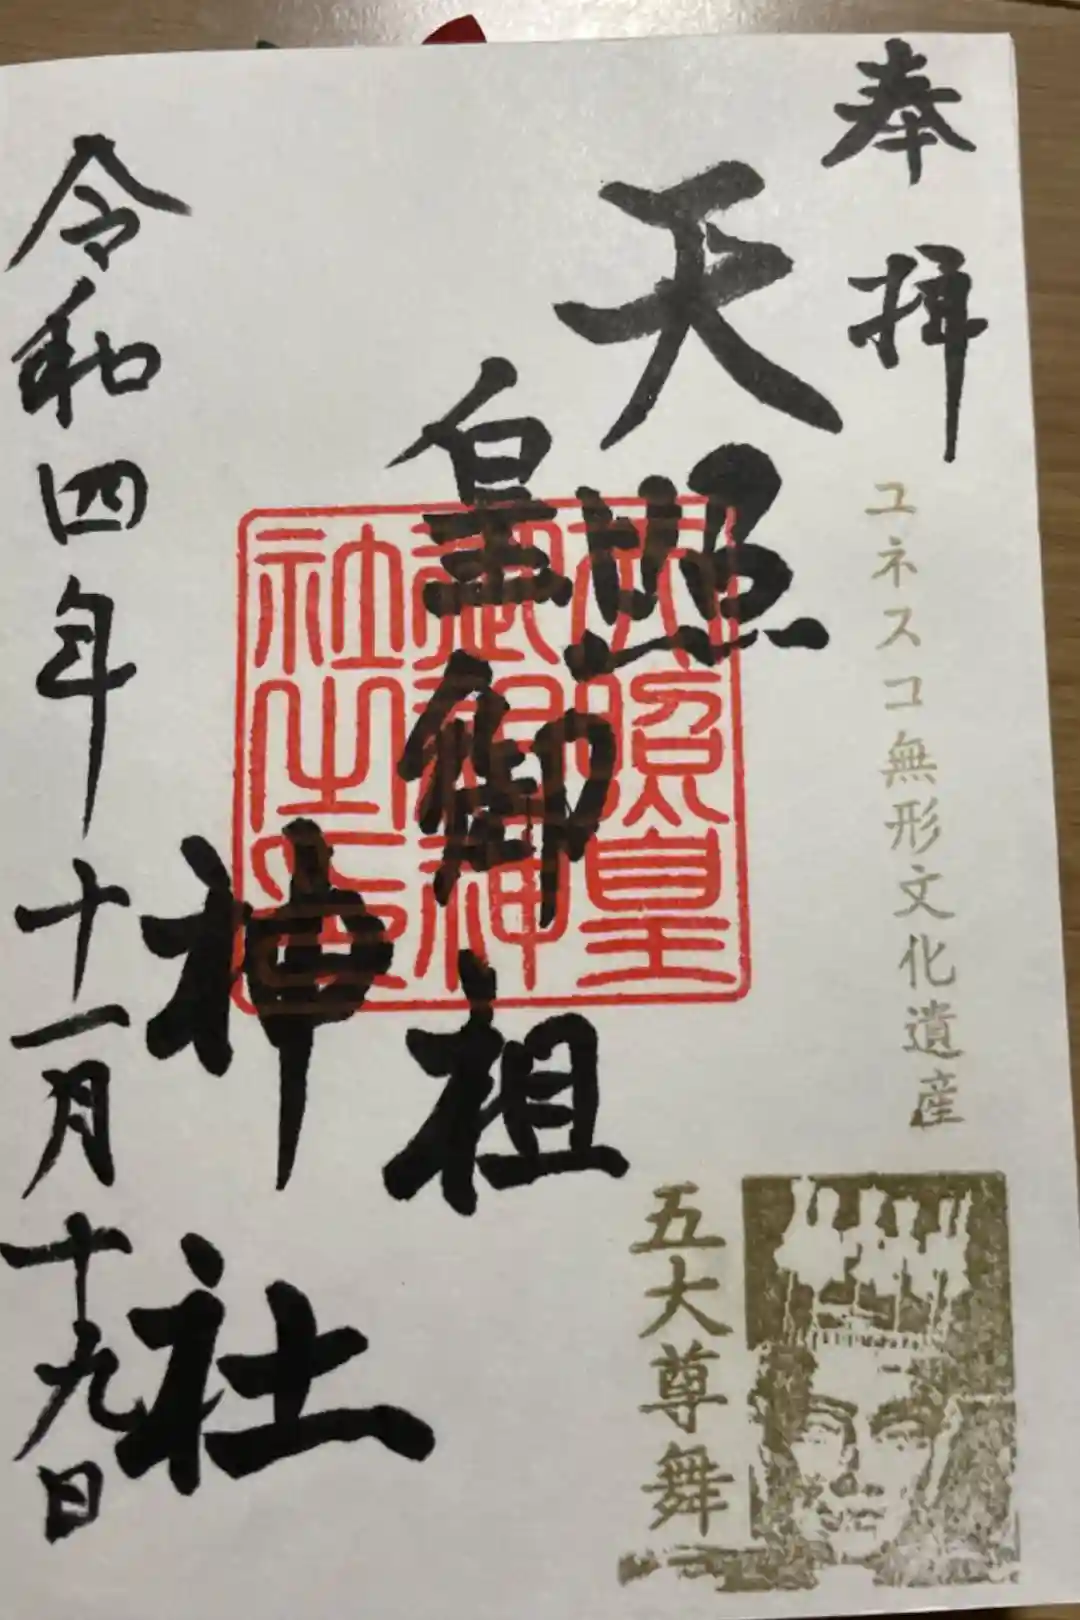 奉拝
ユネスコ無形文化遺産
五大尊舞
天照
皇御祖
神社
天照皇
御祖神
社之印
令和四年十一月十九日